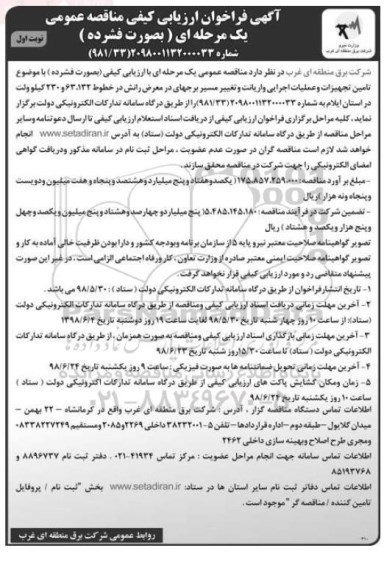 آگهی فراخوان ارزیابی کیفی مناقصه عمومی
یک مرحله ای ( بصورت فشرده )
نوبت اول
شماره ۲۰۹۸۰۰۱۱۳۲۰۰۰۰۳۳ (۹۸۱/۳۳)
شرکت برق منطقه ای غرب
شرکت برق منطقه ای غرب در نظر دارد مناقصه عمومی یک مرحله ای با ارزیابی کیفی (بصورت فشرده ) با موضوع
تامین تجهیزات و عملیات اجرایی واریانت و تغییر مسیر برجهای در معرض رانش در خطوط ۶۳،۱۳۲ و ۲۳۰ کیلو ولت
در استان ایلام به شماره ۲۰۹۸۰۰۱۱۳۲۰۰۰۰۳۳ (۹۸۱/۳۳) را از طریق درگاه سامانه تدارکات الکترونیکی دولت برگزار
نماید ، کلیه مراحل برگزاری فراخوان ارزیابی کیفی از دریافت اسناد استعلام ارزیابی کیفی تا ارسال دعوتنامه و سایر
مراحل مناقصه از طریق درگاه سامانه تدارکات الکترونیکی دولت (ستاد) به آدرس www.setadiran.ir انجام
خواهد شد لازم است مناقصه گران در صورت عدم عضویت ، مراحل ثبت نام در سامانه مذکور ودریافت گواهی
امضای الکترونیکی را جهت شرکت در مناقصه محقق سازند .
- مبلغ بر آورد مناقصه : ۱۷۵،۸۵۷،۲۵۹،۰۰۰ ( یکصدوهفتاد و پنج میلیارد و هشتصد و پنجاه و هفت میلیون و دویست
و پنجاه ونه هزار )ریال
- تضمین شرکت در فرآیند مناقصه : ۵،۴۸۵،۱۴۵،۱۸۰( پنج میلیارد و چهارصد و هشتاد و پنج میلیون ویکصد و چهل
و پنج هزار و یکصد و هشتاد ) ریال
تصویر گواهینامه صلاحیت معتبر نیرو پایه ۵ از سازمان برنامه وبودجه کشور و دارا بودن ظرفیت خالی آماده به کار و
تصویر گواهینامه صلاحیت ایمنی معتبر صادره از وزارت تعاون ، کار ورفاه اجتماعی الزامی است . در غیر این صورت
پیشنهاد متقاضی رد و مورد ارزیابی کیفی قرار نخواهد گرفت .
۱- تاریخ انتشار فراخوان از طریق درگاه سامانه تدارکات الکترونیکی دولت ( ستاد ) : ۹۸/۵/۳۰ می باشد .
۲- آخرین مهلت زمانی دریافت اسناد ارزیابی کیفی ومناقصه از طریق درگاه سامانه تدارکات الکترونیکی دولت
(ستاد): از ساعت ۱۰ روز چهار شنبه تاریخ ۹۸/۵/۳۰ لغایت ساعت ۱۹ روز دوشنبه تاریخ ۱۳۹۸/۶/۴
۳- آخرین مهلت زمانی بارگذاری اسناد ارزیابی کیفی ومناقصه به صورت همزمان ، از طریق درگاه سامانه تدارکات
الکترونیکی دولت ( ستاد) تا ساعت ۱۵/۳۰روز شنبه تاریخ ۹۸/۶/۲۳
۴- آخرین مهلت زمانی تحویل ضمانتنامه ها به صورت فیزیکی : ساعت ۹ روز یکشنبه تاریخ ۹۸/۶/۲۴
۵- زمان ومکان گشایش پاکت های ارزیابی کیفی از طریق درگاه سامانه تدارکات الکترونیکی دولت ( ستاد )
ساعت ۱۰ روز یکشنبه تاریخ ۹۸/۶/۲۴
اطلاعات تماس دستگاه مناقصه گزار ، آدرس : شرکت برق منطقه ای غرب واقع در کرمانشاه – ۲۲ بهمن –
میدان گلایول –طبقه دوم –اداره قراردادها –تلفن ۵-۳۸۲۳۲۰۰۱ داخلی ۲۰۵۸و۲۲۶۹ومستقیم ۰۸۳۳۸۲۲۷۲۴۹
ومجری طرح اصلاح وبهینه سازی داخلی ۲۴۶۲
اطلاعات تماس سامانه جهت انجام مراحل عضویت : مرکز تماس ۴۱۹۳۴-۰۲۱ . دفتر ثبت نام ۸۸۹۶۷۳۷ و
۸۵۱۹۳۷۶۸
اطلاعات تماس دفاتر ثبت نام سایر استان ها در ستاد: www.setadiran.ir بخش "ثبت نام / پروفایل
تامین کننده / مناقصه گر " موجود است .
روابط عمومی شرکت برق منطقه ای غرب